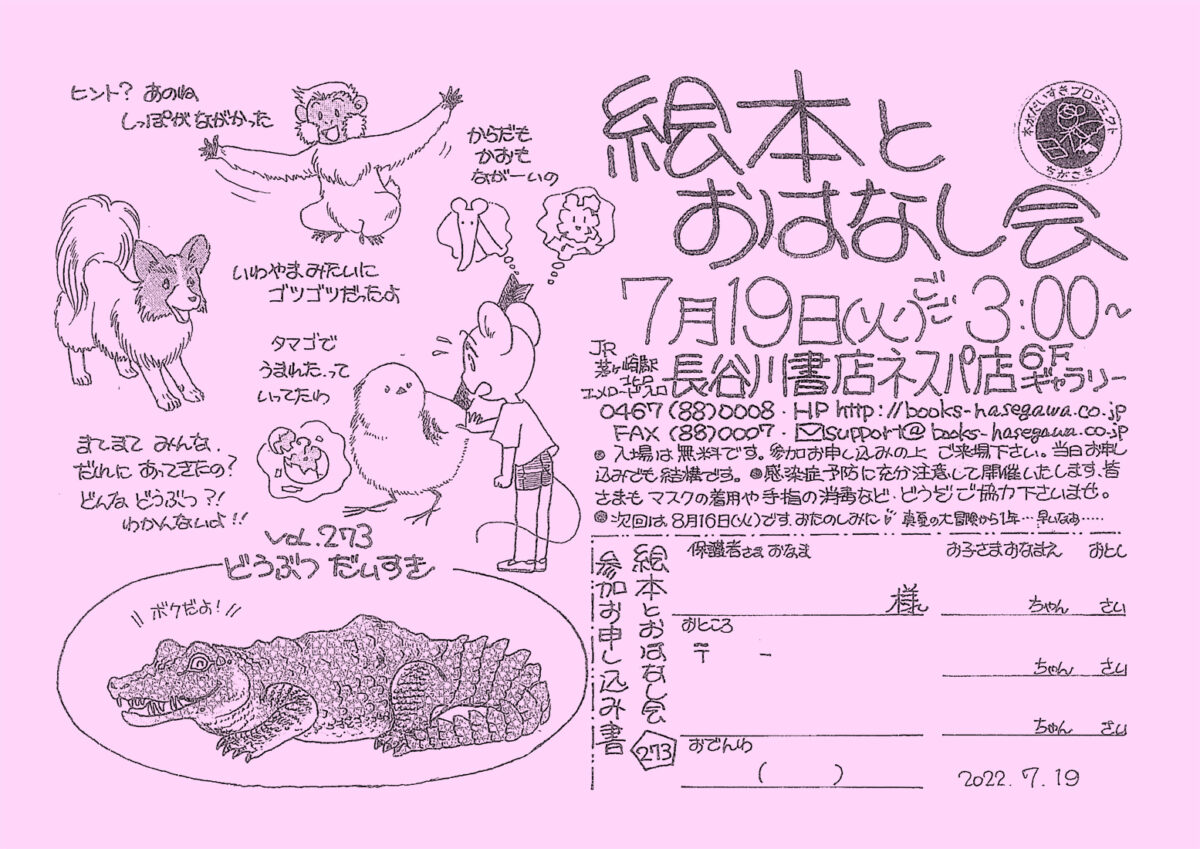 ヒント? あのね
しっぽが ながかった
からだも
かおも
ながーいの
いわやまみたいに
ゴツゴツだったよ
タマゴで
うまれた.って
いってたわ
まてまて みんな.
だれに あってきたの?
どんな どうぶつ?!
わかんないよ!!
VOL.273
どうぶつ だいすき
ボクだよ!
絵本と
おはなし会
本がだいすきプロジェクト
ちがさき
7月19日(火)ごご3:00~
JR
茅ヶ崎駅
北口
エメロードプロ
長谷川書店ネスパ店
6F
ギャラリー
0467(88)0008・HP http://books-hasegawa.co.jp
FAX (88)0007・support@books-hasegawa.co.jp
●入場は無料です。参加お申し込みの上 ご来場下さい。当日お申し
込みでも結構です。●感染症予防に充分注意して開催いたします.皆
さまも マスクの着用や手指の消毒など.どうぞご協力下さいませ。
●次回は8月16日(火)です.おたのしみに 真夏の大冒険から1年…早いなあ……
絵本とおはなし会 273
参加お申し込み書
保護者さまおなまえ
様
おところ
〒 -
おでんわ
( )
お子さまおなまえ おとし
ちゃん さい
ちゃん さい
ちゃん さい
2022.7.19